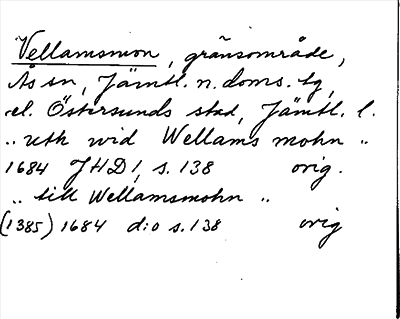 Vellamsmon, gränsområde,
Ås sn, Jämtl. n. doms. tg,
el. Östersunds stad, Jämtl. l.
„ uth wid Wellams mohn „
1684 JHD 1, s. 138 orig.
„ till Wellamsmohn „
(1385) 1684 d:o s. 138 orig